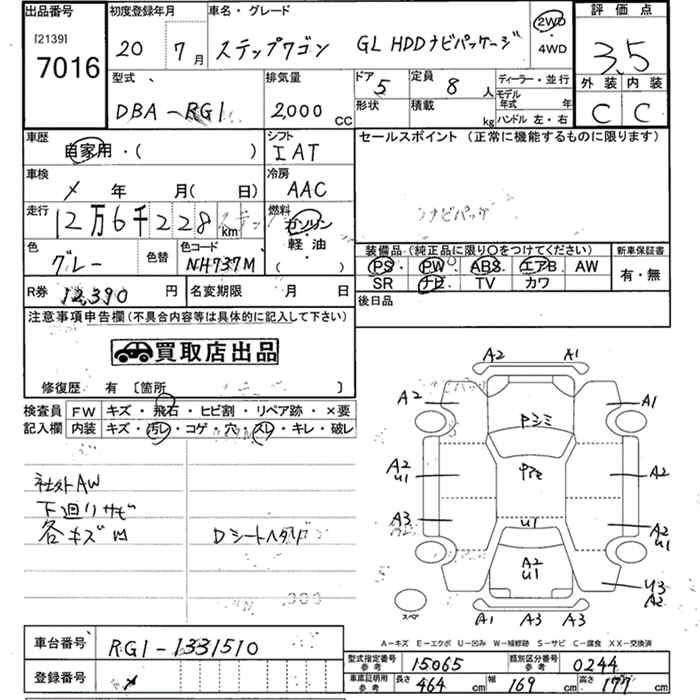 出品番号 初度登録年月 車名・グレード 評価点
[2139] 7016
20 7月 ステップワゴン GL HDDナビパッケージ 2WD ・ 4WD 3.5
型式 排気量 ドア 5 定員 8人 ディーラー・並行 外装 内装
DBA-RG1 2,000cc 形状 積載 kg モデル年式 年 C C
ハンドル 左・右
車歴 シフト セールスポイント (正常に機能するものに限ります)
自家用・( ) IAT
車検 冷房
年 月( 日) AAC
走行 12万6千228km 燃料 ガソリン・軽油 ( )
ナビパッケ
色 グレー 色替 色コード NH737M 装備品(純正品に限り○をつけてください) 新車保証書
PS・PW・ABS・エアB AW 有・無
SR ナビ TV カワ
R券 12,390円 名変期限 月 日 後日品
注意事項申告欄(不具合内容等は具体的に記入して下さい)
買取店出品
修復歴 有 〔箇所 〕
検査員 FW キズ・飛石・ヒビ割・リペア跡・×要
記入欄 内装 キズ・汚レ・コゲ・穴・スレ・キレ・破レ
社外AW
下廻リサビ
各キズ凹 Dシートヘタリ
A2 A1
A2 A1
Pシミ
A2 U1 A2
A3 U1 A2 U1
A2 U1 U3 A2
スペア A1 A3 A3
A-キズ E-エクボ U-凹み W-補修跡 S-サビ C-腐食 XX-交換済
車台番号 RG1-1331510
登録番号
型式指定番号 参考 15065 類別区分番号 参考 0244
車庫証明用 参考 長さ 464cm 幅 169cm 高さ 177cm